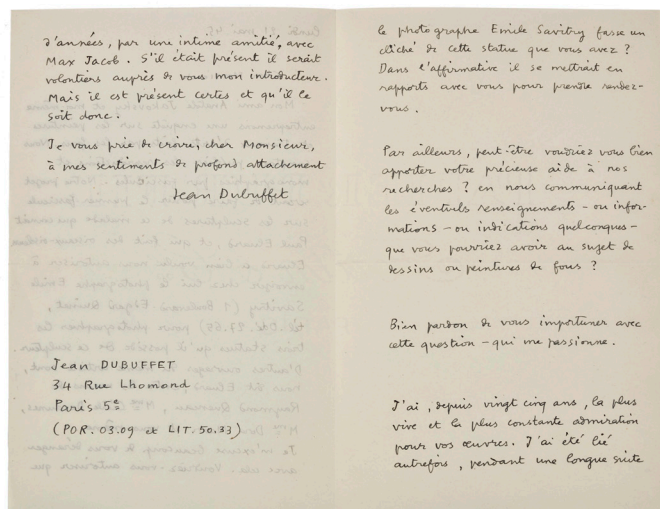 d'années, par une intime amitié, avec
Max Jacob. S'il était présent il serait
volontiers auprès de vous mon introducteur.
Mais il est présent certes et qu'il le
soit donc.
Je vous prie de croire, cher Monsieur,
à mes sentiments de profond attachement
Jean Dubuffet
Jean DUBUFFET
34 Rue Lhomond
Paris 5e
(POR. 03.09 et LIT. 50.33)
le photographe Emile Savitry fasse un
cliché de cette statue que vous avez ?
Dans l'affirmative il se mettrait en
rapports avec vous pour prendre rendez-
vous.
Par ailleurs, peut-être voudriez vous bien
apporter votre précieuse aide à nos
recherches ? en nous communiquant
les éventuls renseignements - ou infor-
mations - ou indications quelconques -
que vous pourriez avoir au sujet de
dessins ou peintures de fous ?
Bien pardon de vous importuner avec
cette question - qui me passionne.
J'ai, depuis vingt cinq ans, la plus
vive et la plus constante admiration
pour vos œuvres. J'ai été lié
autrefois, pendant une longue suite